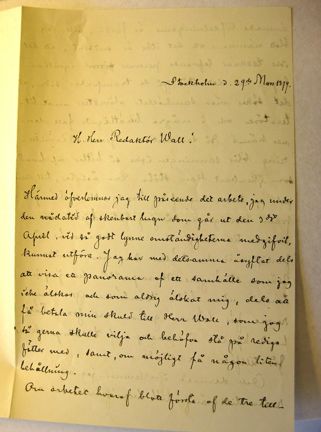 Stockholm d. 29de Mars 1879.
H. Herr Redaktör Wall!
Härmed öfverlemnar jag till påseende det arbete, jag under
den nådatid af skenbart lugn som går ut den 3dje
April, vid så godt lynne omständigheterna medgifvit,
kunnat utföra. Jag har med detsamma åsyftat dels
att visa ett panorama af ett samhälle som jag
icke älskar och som aldrig älskat mig, dels att
få betala min skuld till Herr Wall, som jag
så gerna skulle vilja och behöfva stå på rediga
fötter med, samt, om möjligt få någon liten
behållning.
Om arbetet hvaraf blott första af de tre